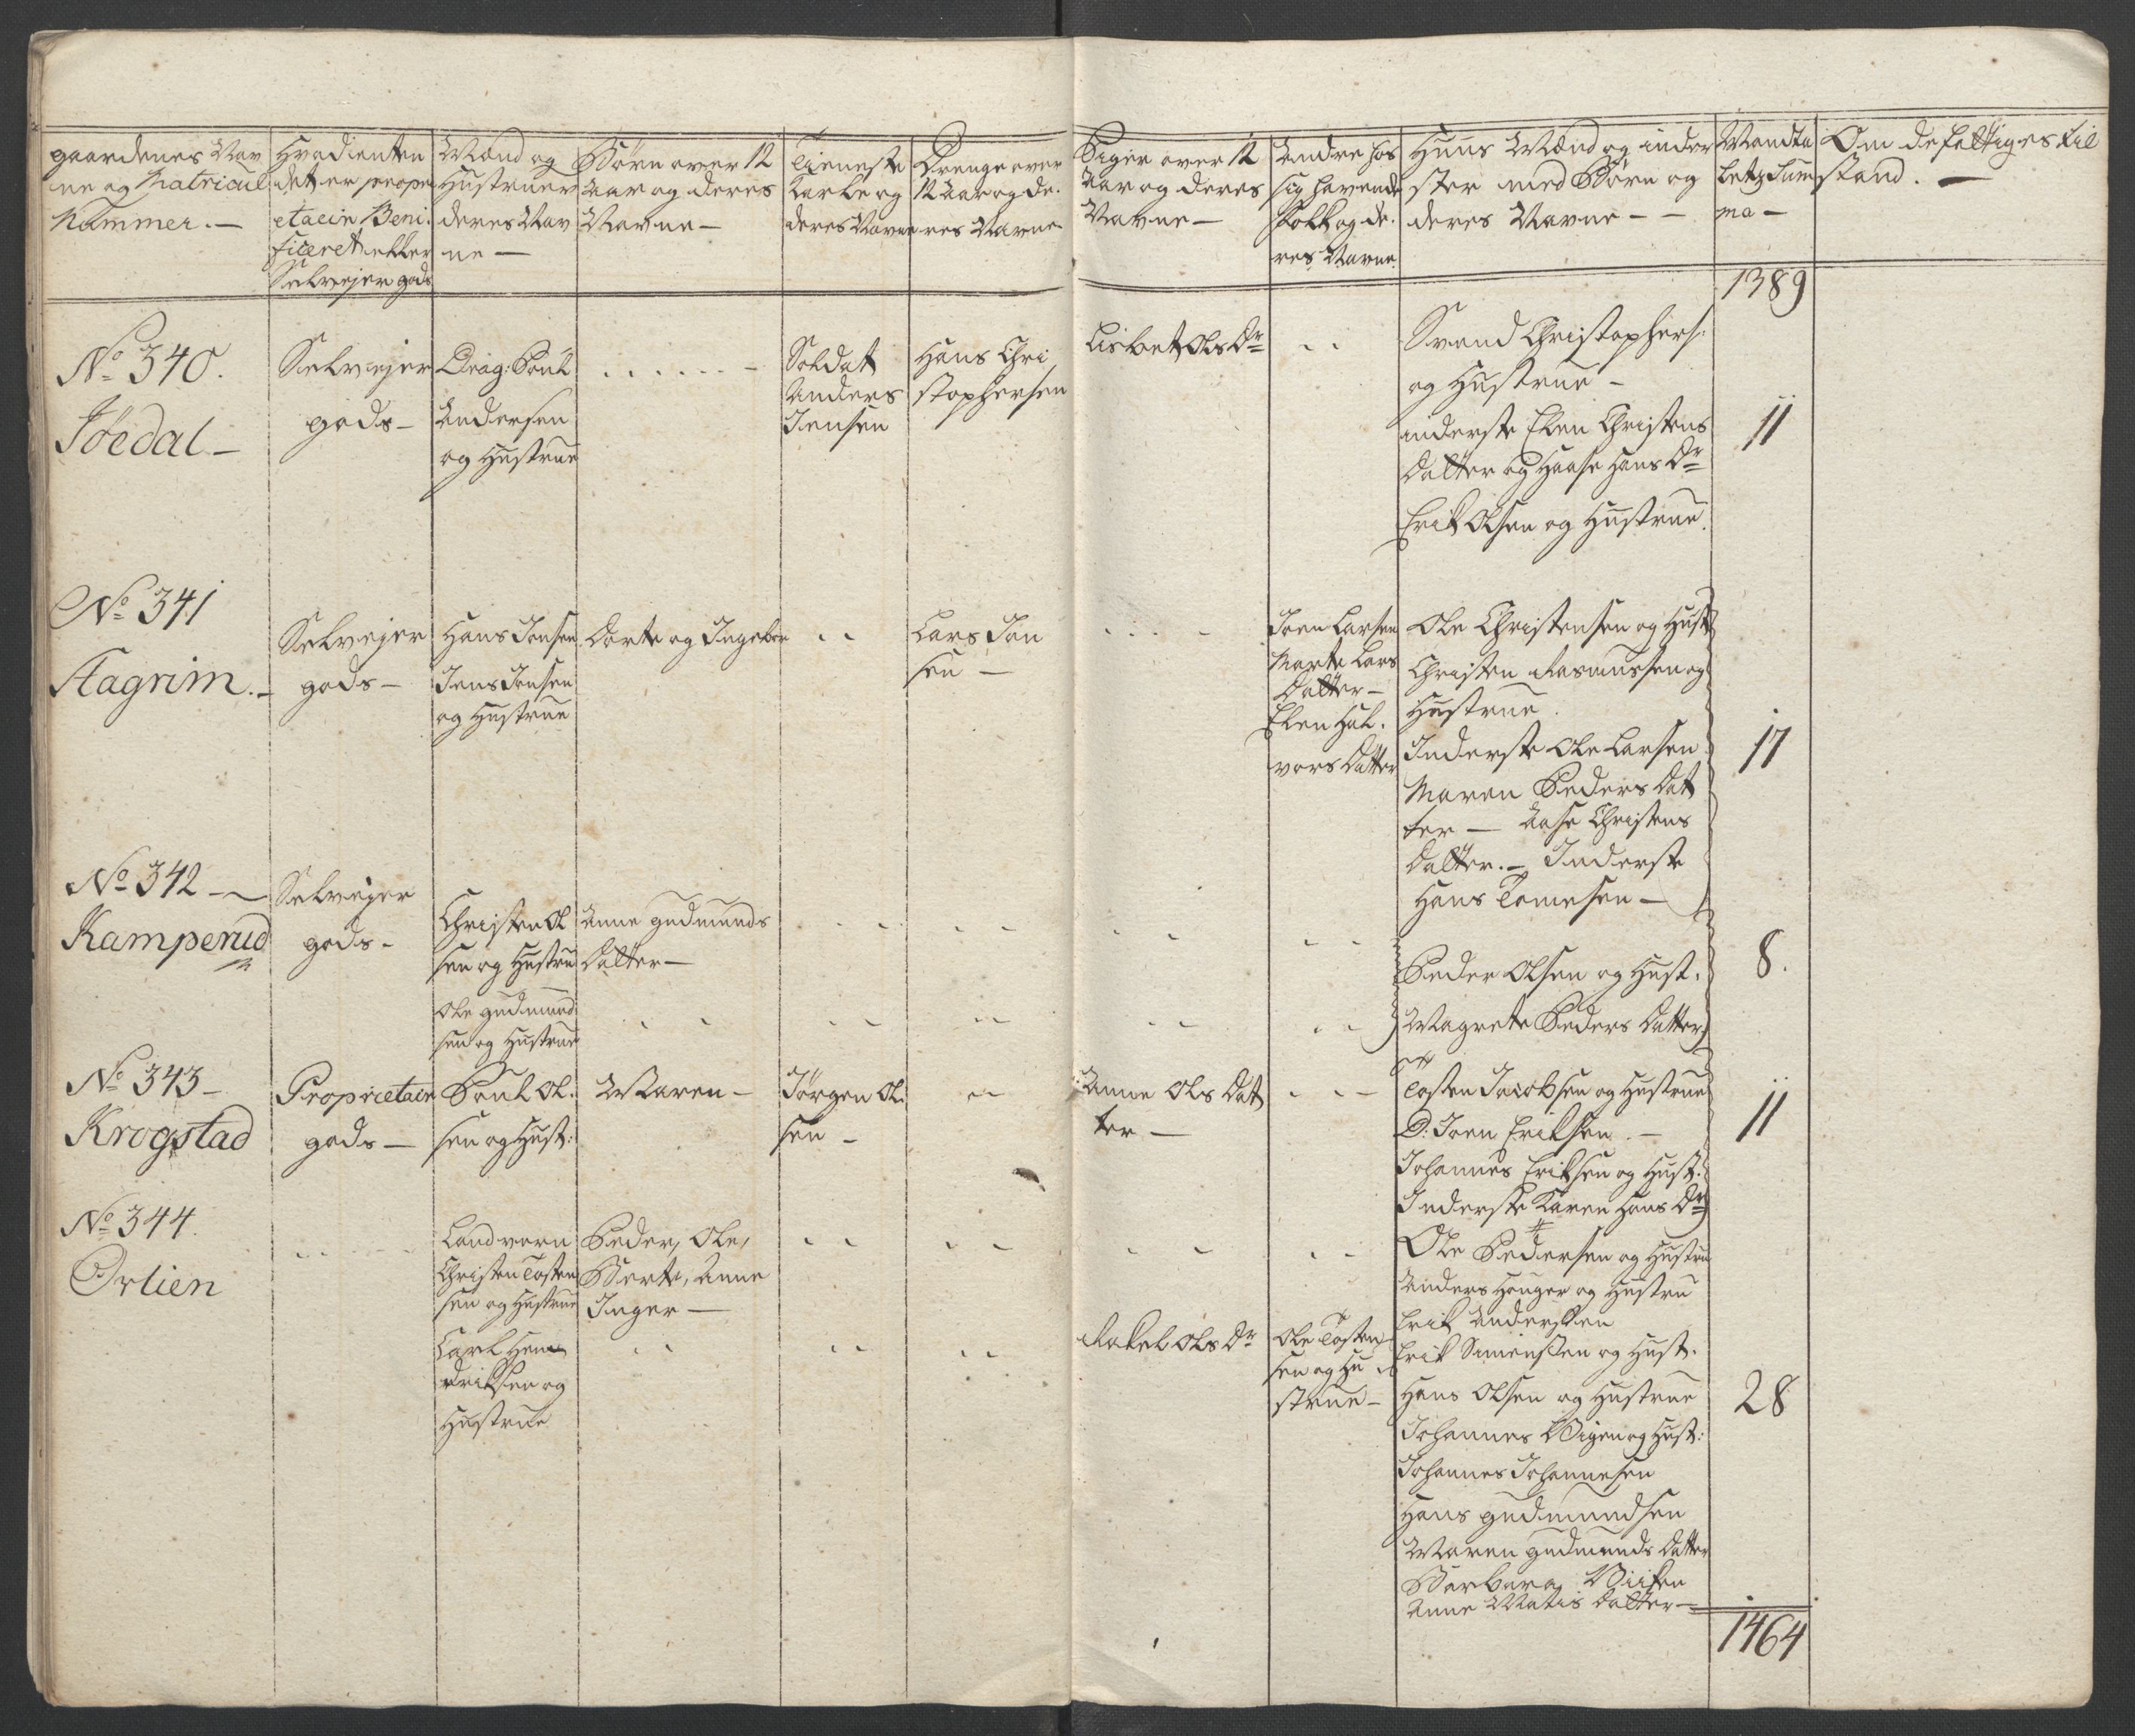 gaardenes Nav
ne og Matricul
Nummer. —
Hvad ienten
det er prope
etaeir, Beni-
ficeret eller
Selvejer gods
Mænd og
Hustruer
deres Nav
ne —
Børn over 12
Aar og deres
Navne —
Tieneste
Karle og
deres Navne
Drenge over
12 Aar og de-
res Navne.
Piger over 12
Aar og deres
Navne —
Andre hos
sig havende
Folk og de-
res Navne.
Huus Mænd og inder
ster med Børn og
deres Navne — —
Mandta
lets Sum
ma —
Om de fattiges til
stand. —
1389
No 340.
Töedal —
Selvejer
gods —
Drag: Poul
Andersen
og Hustrue
. . . . . . —
Soldat
Anders
Jensen
Hans Chri
stophersen
Lisbet Ols Dr
. .
Svend Christophers:
og Hustrue —
inderste Elen Christens
Datter og Haase Hans Dr
Erik Olsen og Hustrue.
11
No 341
Hagrim. —
Selvejer
gods —
Hans Jonsen
Jens Jonsen
og Hustrue
Dorte og Ingebor
. .
Lars Jon
sen —
. . . —
Joen Larsen
Marte Lars
Datter —
Elen Hal-
vors Datter
Ole Christensen og Hust
Christen Rasmussen og
Hustrue.
Inderste Ole Larsen
Maren Peders Dat
ter — Aase Christens
Datter. — Inderste
Hans Tomesen —
17
No 342 —
Kamperud
Selvejer
gods —
Christen Ol
sen og Hustru
Ole gudmund
sen og Hustrue
Anne gudmunds
Datter —
Peder Olsen og Hust.
Magrete Peders Datter
8.
No 343 —
Krogstad
Proprietair
gods —
Poul Ol-
sen og Hust:
Maren —
Jörgen Ol-
sen —
Anne Ols Dat
ter —
Tosten Jacobsen og Hustrue
D: Joen Eriksen. —
Johannes Eriksen og Hust.
Inderste Karen Hans Dr
11
No 344.
Orlien
Landvern
Christen Tosten
sen og Hustrue
Carl Hen
driksen og
Hustrue
Peder, Ole,
Berte, Anne
Inger —
Rakel Ols Dr
Ole Tosten
sen og Hu
strue —
Ole Pedersen og Hustru
Anders Hauger og Hustru
Erik Anderssen
Erik Simenssen og Hust.
Hans Olsen og Hustrue
Johannes Vigen og Hust:
Johannes Johannesen
Hans gudmundsen
Maren gudmunds Datter
Barbara Viiken
Anne Matis Datter —
28
1464